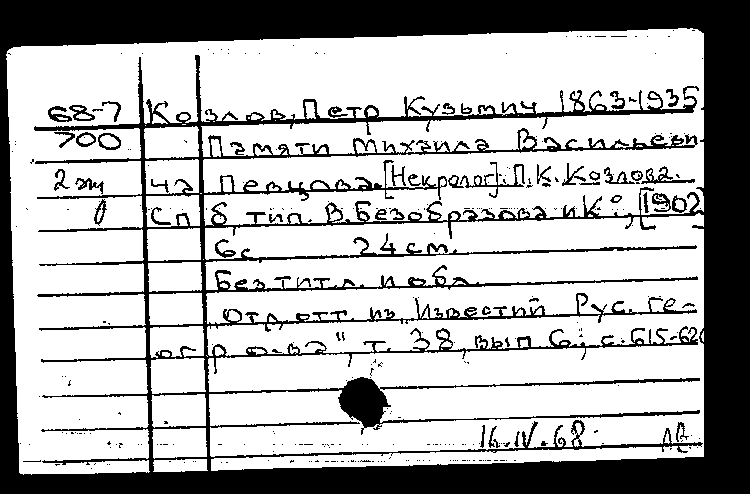 68-7 Козлов, Петр Кузьмич, 1863-1935.
700 Памяти Михаила Васильеви-
2 эк ча Певцова. [Некролог]. П.К. Козлова.
Спб, тип. В. Безобразова и К°, [1902]
6 с. 24 см.
Без тит. л. и обл.
Отд. отт. из „Известий Рус. ге-
огр о-ва", т. 38, вып 6, с. 615-620
16.IV.68.